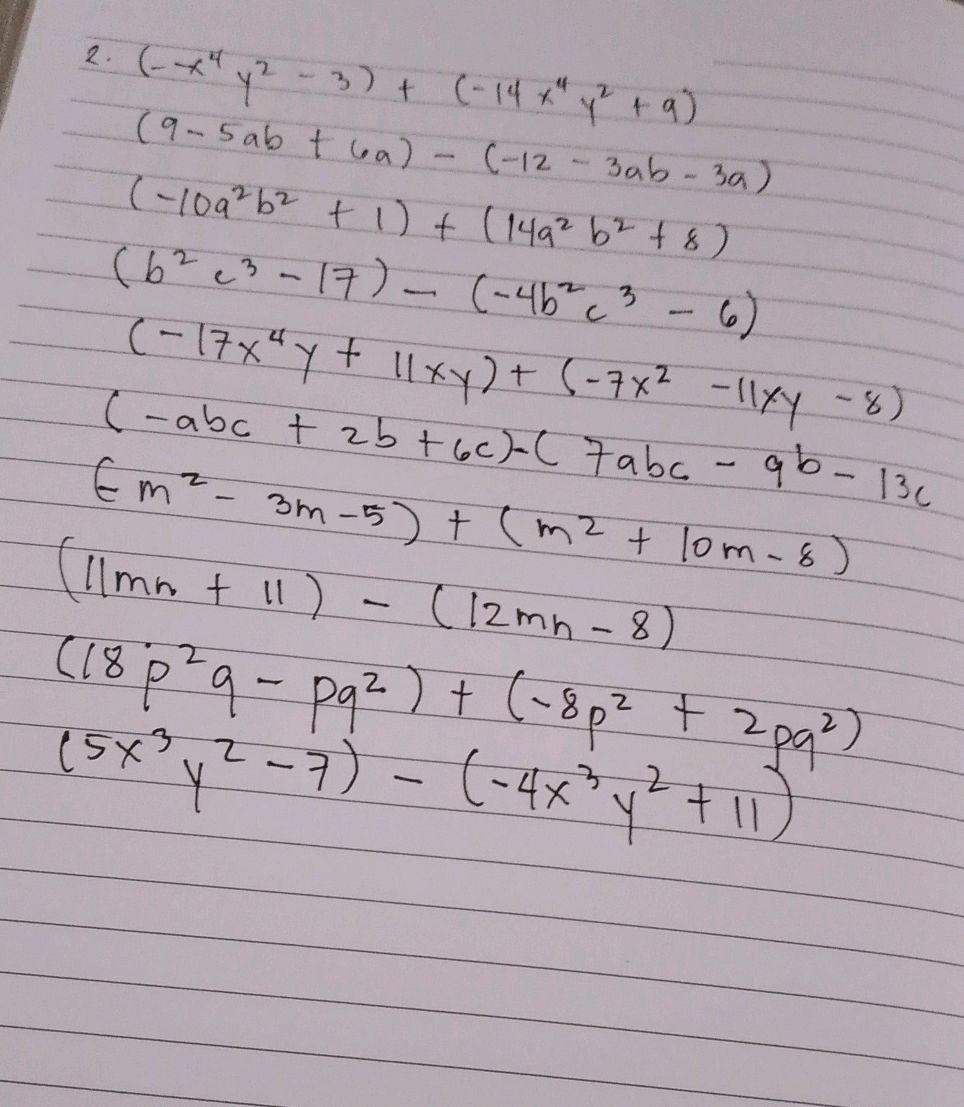 2. (-x⁴y² - 3) + (-14x⁴y² + 9)
(9 - 5ab + 6a) - (-12 - 3ab - 3a)
(-10a²b² + 1) + (14a²b² + 8)
(b²c³ - 17) - (-4b²c³ - 6)
(-17x⁴y + 11xy) + (-7x² - 11xy - 8)
(-abc + 2b + 6c) - (7abc - 9b - 13c
(-m² - 3m - 5) + (m² + 10m - 8)
(11mn + 11) - (12mn - 8)
(18p²q - pq²) + (-8p² + 2pq²)
(5x³y² - 7) - (-4x³y² + 11)